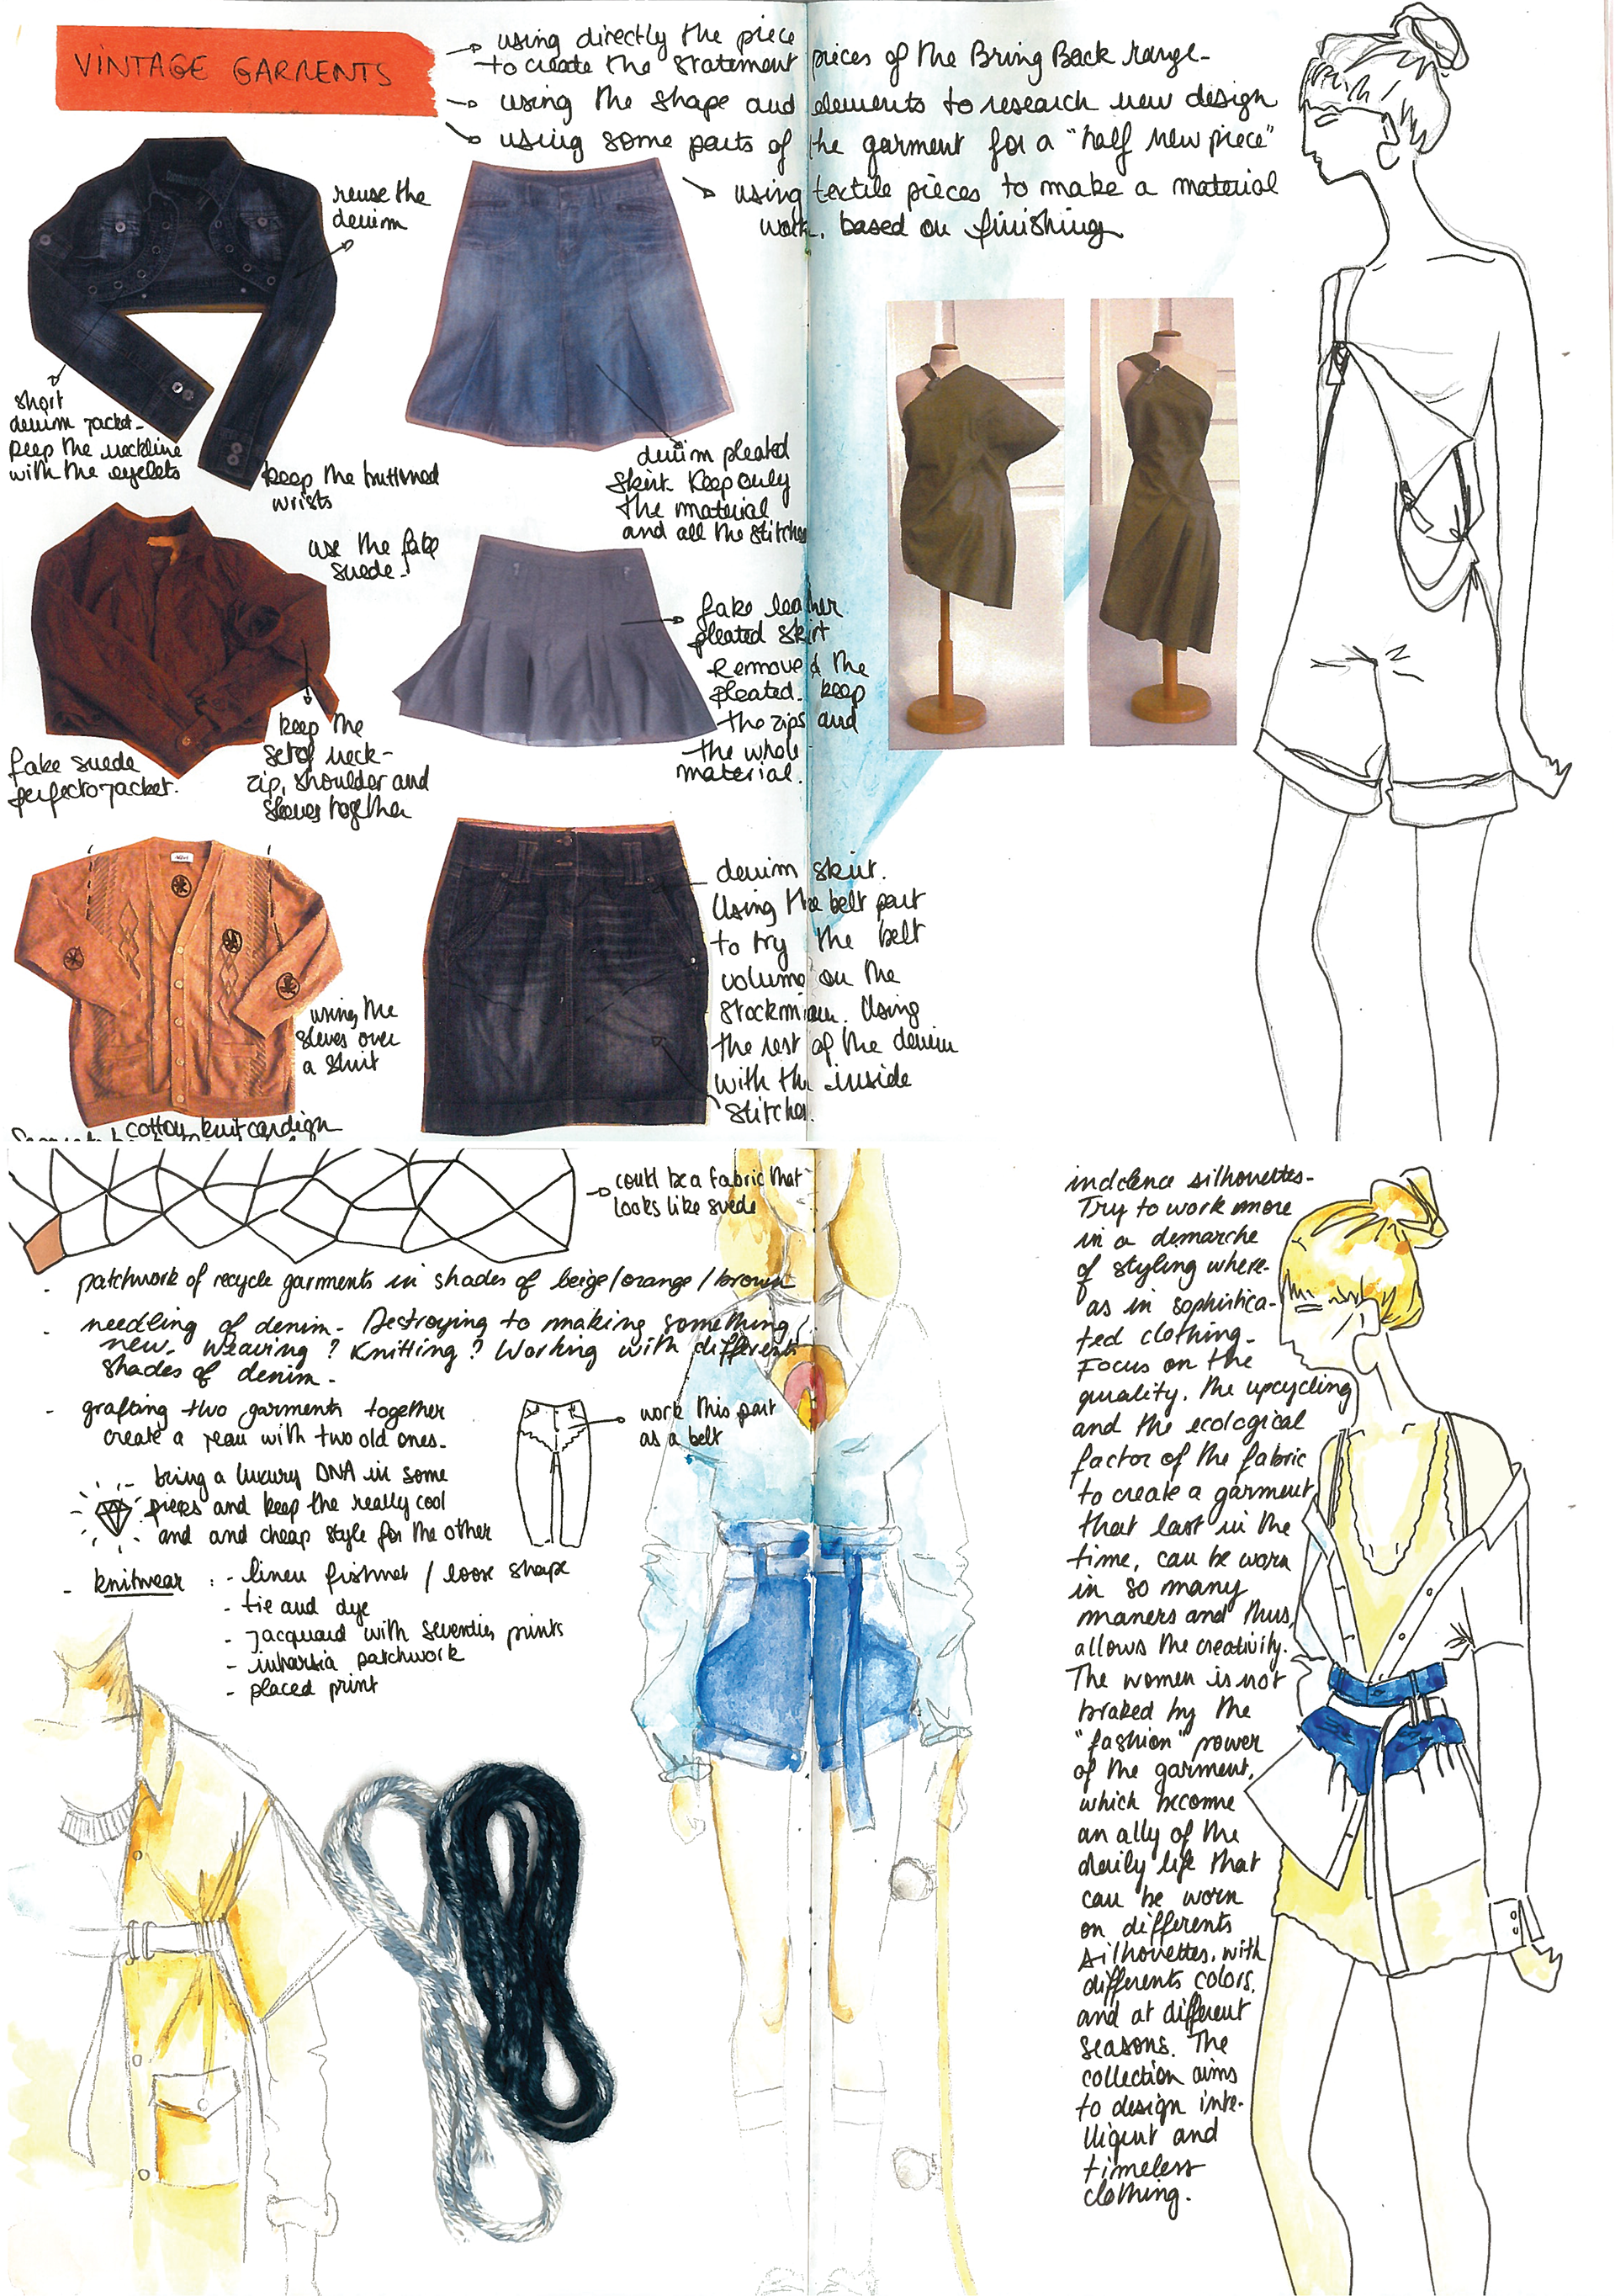 VINTAGE GARMENTS
→ using directly the piece pieces of the Bring Back range-
to create the statement
→ using the shape and elements to research new design
→ using some parts of the garment for a "half new piece"
→ using textile pieces to make a material
work. based on finishing
reuse the
denim
short
denim jacket-
keep the neckline
with the eyelets
keep the buttoned
wrists
denim pleated
skirt. Keep only
the material
and all the stitches
use the fake
suede-
fake leather
pleated skirt
Remove the
pleated. keep
the zips and
the whole
material.
keep the
set of neck-
zip, shoulder and
sleeves together
fake suede
perfecto jacket.
using the
sleeves over
a shirt
cotton knit cardign
denim skirt.
Using the belt part
to try the belt
volume on the
Stockman. Using
the rest of the denim
with the inside
stitches.
→ could be a fabric that
looks like suede
- patchwork of recycle garments in shades of beige/orange/brown
- needling of denim- Destroying to making something
new- Weaving? Knitting? Working with differents
shades of denim-
- grafting two garments together
create a new with two old ones-
work this part
as a belt
bring a luxury DNA in some
pieces and keep the really cool
and and cheap style for the other
- knitwear : - linen fishnet / loose shape
- tie and dye
- jacquard with seventies prints
- intarsia patchwork
- placed print
indolence silhouettes-
Try to work more
in a demarche
of styling where-
as in sophistica-
ted clothing-
Focus on the
quality, the upcycling
and the ecological
factor of the fabric
to create a garment
that last in the
time, can be worn
in so many
maners and thus,
allows the creativity.
The women is not
braked by the
"fashion" power
of the garment,
which become
an ally of the
daily life that
can be worn
on differents
silhouettes, with
differents colors,
and at different
seasons. The
collection aims
to design inte-
lligent and
timeless
clothing.